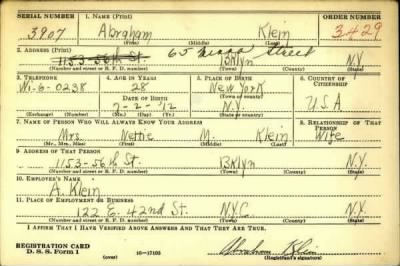 SERIAL NUMBER 1. NAME (Print) ORDER NUMBER
3907 Abraham Klein 3429
(First) (Middle) (Last)
2. ADDRESS (Print) 65 Street
1153-56th St. Bklyn N.Y.
(Number and street or R. F. D. number) (Town) (County) (State)
3. TELEPHONE 4. AGE IN YEARS 5. PLACE OF BIRTH 6. COUNTRY OF CITIZENSHIP
Wi-6-0238 28 New York
DATE OF BIRTH (Town or county)
7-2-'12 N.Y. U.S.A
(Exchange) (Number) (Mo.) (Day) (Yr.) (State or country)
7. NAME OF PERSON WHO WILL ALWAYS KNOW YOUR ADDRESS 8. RELATIONSHIP OF THAT PERSON
Mrs. Nettie M. Klein Wife
(Mr., Mrs., Miss) (First) (Middle) (Last)
9. ADDRESS OF THAT PERSON
1153-56th St. Bklyn N.Y.
(Number and street or R. F. D. number) (Town) (County) (State)
10. EMPLOYER'S NAME
A. Klein
11. PLACE OF EMPLOYMENT OR BUSINESS
122 E. 42nd St. N.Y.C. N.Y.
(Number and street or R. F. D. number) (Town) (County) (State)
I AFFIRM THAT I HAVE VERIFIED ABOVE ANSWERS AND THAT THEY ARE TRUE.
REGISTRATION CARD
D. S. S. Form 1 (over) 16-17105 Abraham Klein
(Registrant's signature)